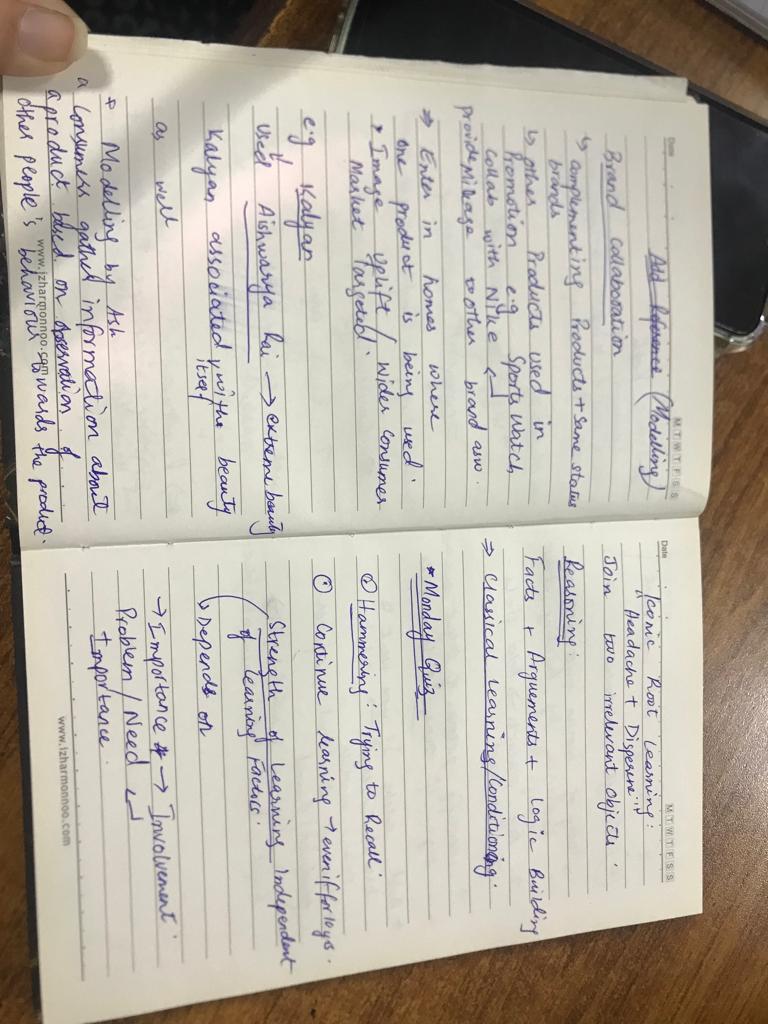 Date
M T W T F S S
Add Reference (Modelling)
Brand Collaboration
↳ complementing Products + Same status
brands
↳ other Products used in
Promotion e.g Sports Watch
Collab with Nike ↵
provide Mileage to other brand asw.
⇒ Enter in homes where
one product is being used.
* Image Uplift / Wider Consumer
Market Targeted.
e.g Kalyan
↓
Used Aishwarya Rai → extreme beauty
Kalyan associated itself with the beauty
as well
* Modelling by Ash
a Consumers gather information about
a product based on observation of
other people's behaviour towards the product.
www.izharmonnoo.com
Date
M T W T F S S
Iconic Root Learning:
"Headache + Disperene"
Join two irrelevant objects.
Reasoning:
Facts + Arguements + Logic Building
⇒ Classical Learning/Conditioning.
* Monday Quiz
Hammering: Trying to Recall.
Continue learning → even if for 10 yrs.
Strength of Learning Independent
of learning Factors.
↳ Depends on
→ Importance → Involvement
Problem / Need ↵
Importance.
www.izharmonnoo.com